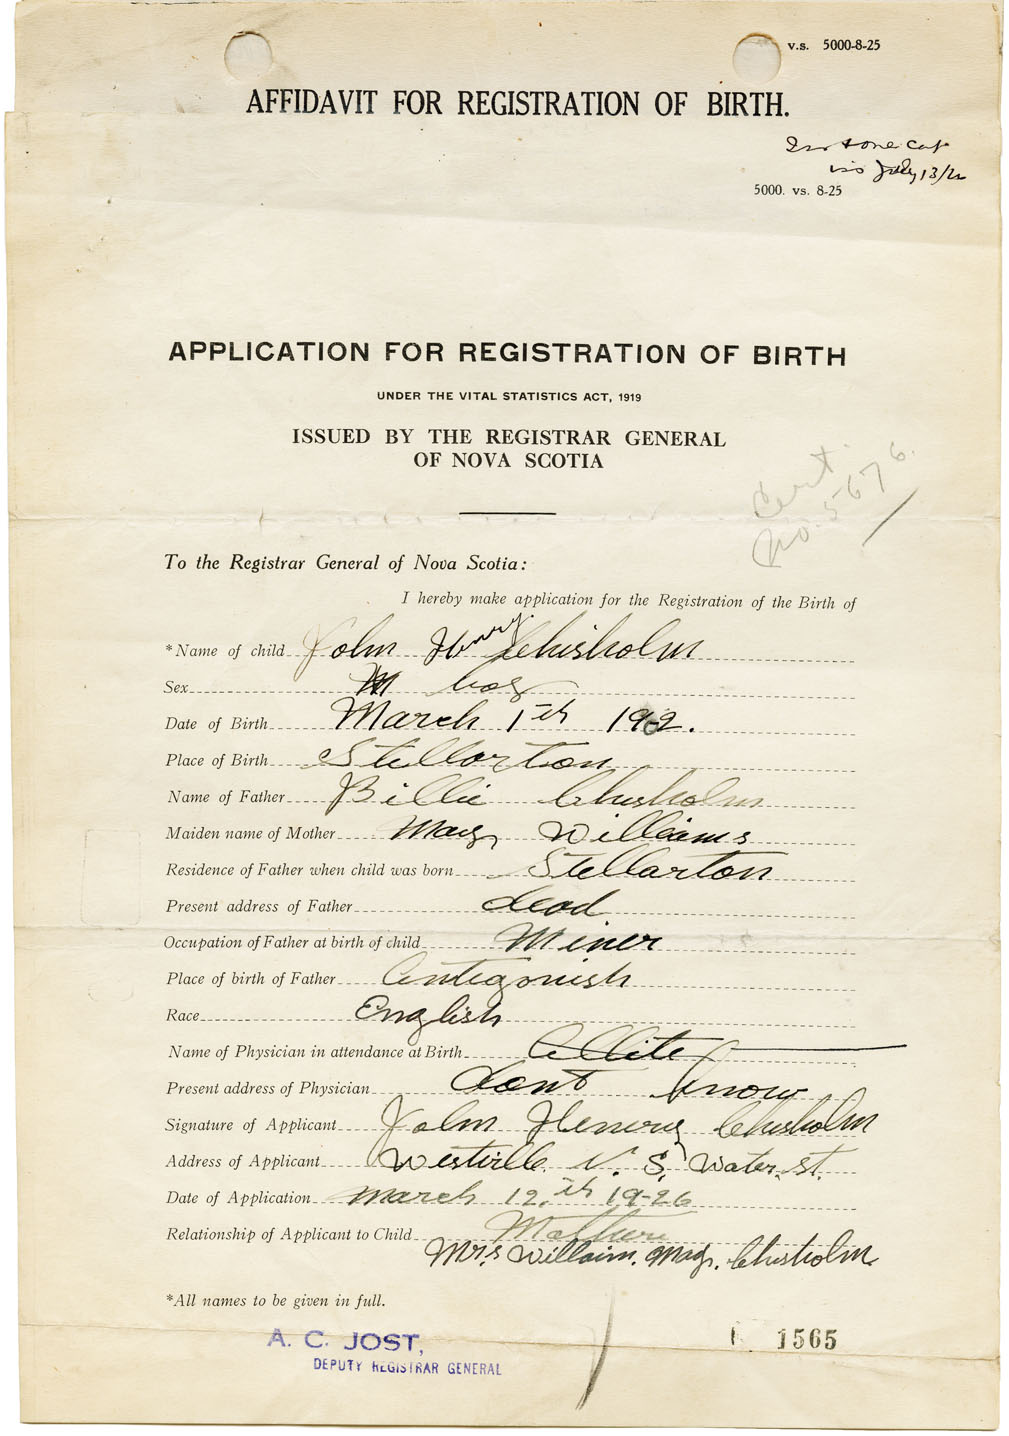 v.s. 5000-8-25
AFFIDAVIT FOR REGISTRATION OF BIRTH.
July 13/2
5000. vs. 8-25
APPLICATION FOR REGISTRATION OF BIRTH
UNDER THE VITAL STATISTICS ACT, 1919
ISSUED BY THE REGISTRAR GENERAL
OF NOVA SCOTIA
Cert.
No. 5676.
To the Registrar General of Nova Scotia:
I hereby make application for the Registration of the Birth of
*Name of child John Henry Chisholm
Sex M boy
Date of Birth March 1th 1902.
Place of Birth Stellarton
Name of Father Billie Chisholm
Maiden name of Mother Mary Williams
Residence of Father when child was born Stellarton
Present address of Father dead
Occupation of Father at birth of child Miner
Place of birth of Father Antigonish
Race English
Name of Physician in attendance at Birth
Present address of Physician dont know
Signature of Applicant John Henery Chisholm
Address of Applicant Westville N. S, Water, St.
Date of Application march 12, th 19-26
Relationship of Applicant to Child
Mrs Willaim. Mary. Chisholm.
*All names to be given in full.
A. C. JOST,
DEPUTY REGISTRAR GENERAL
1565